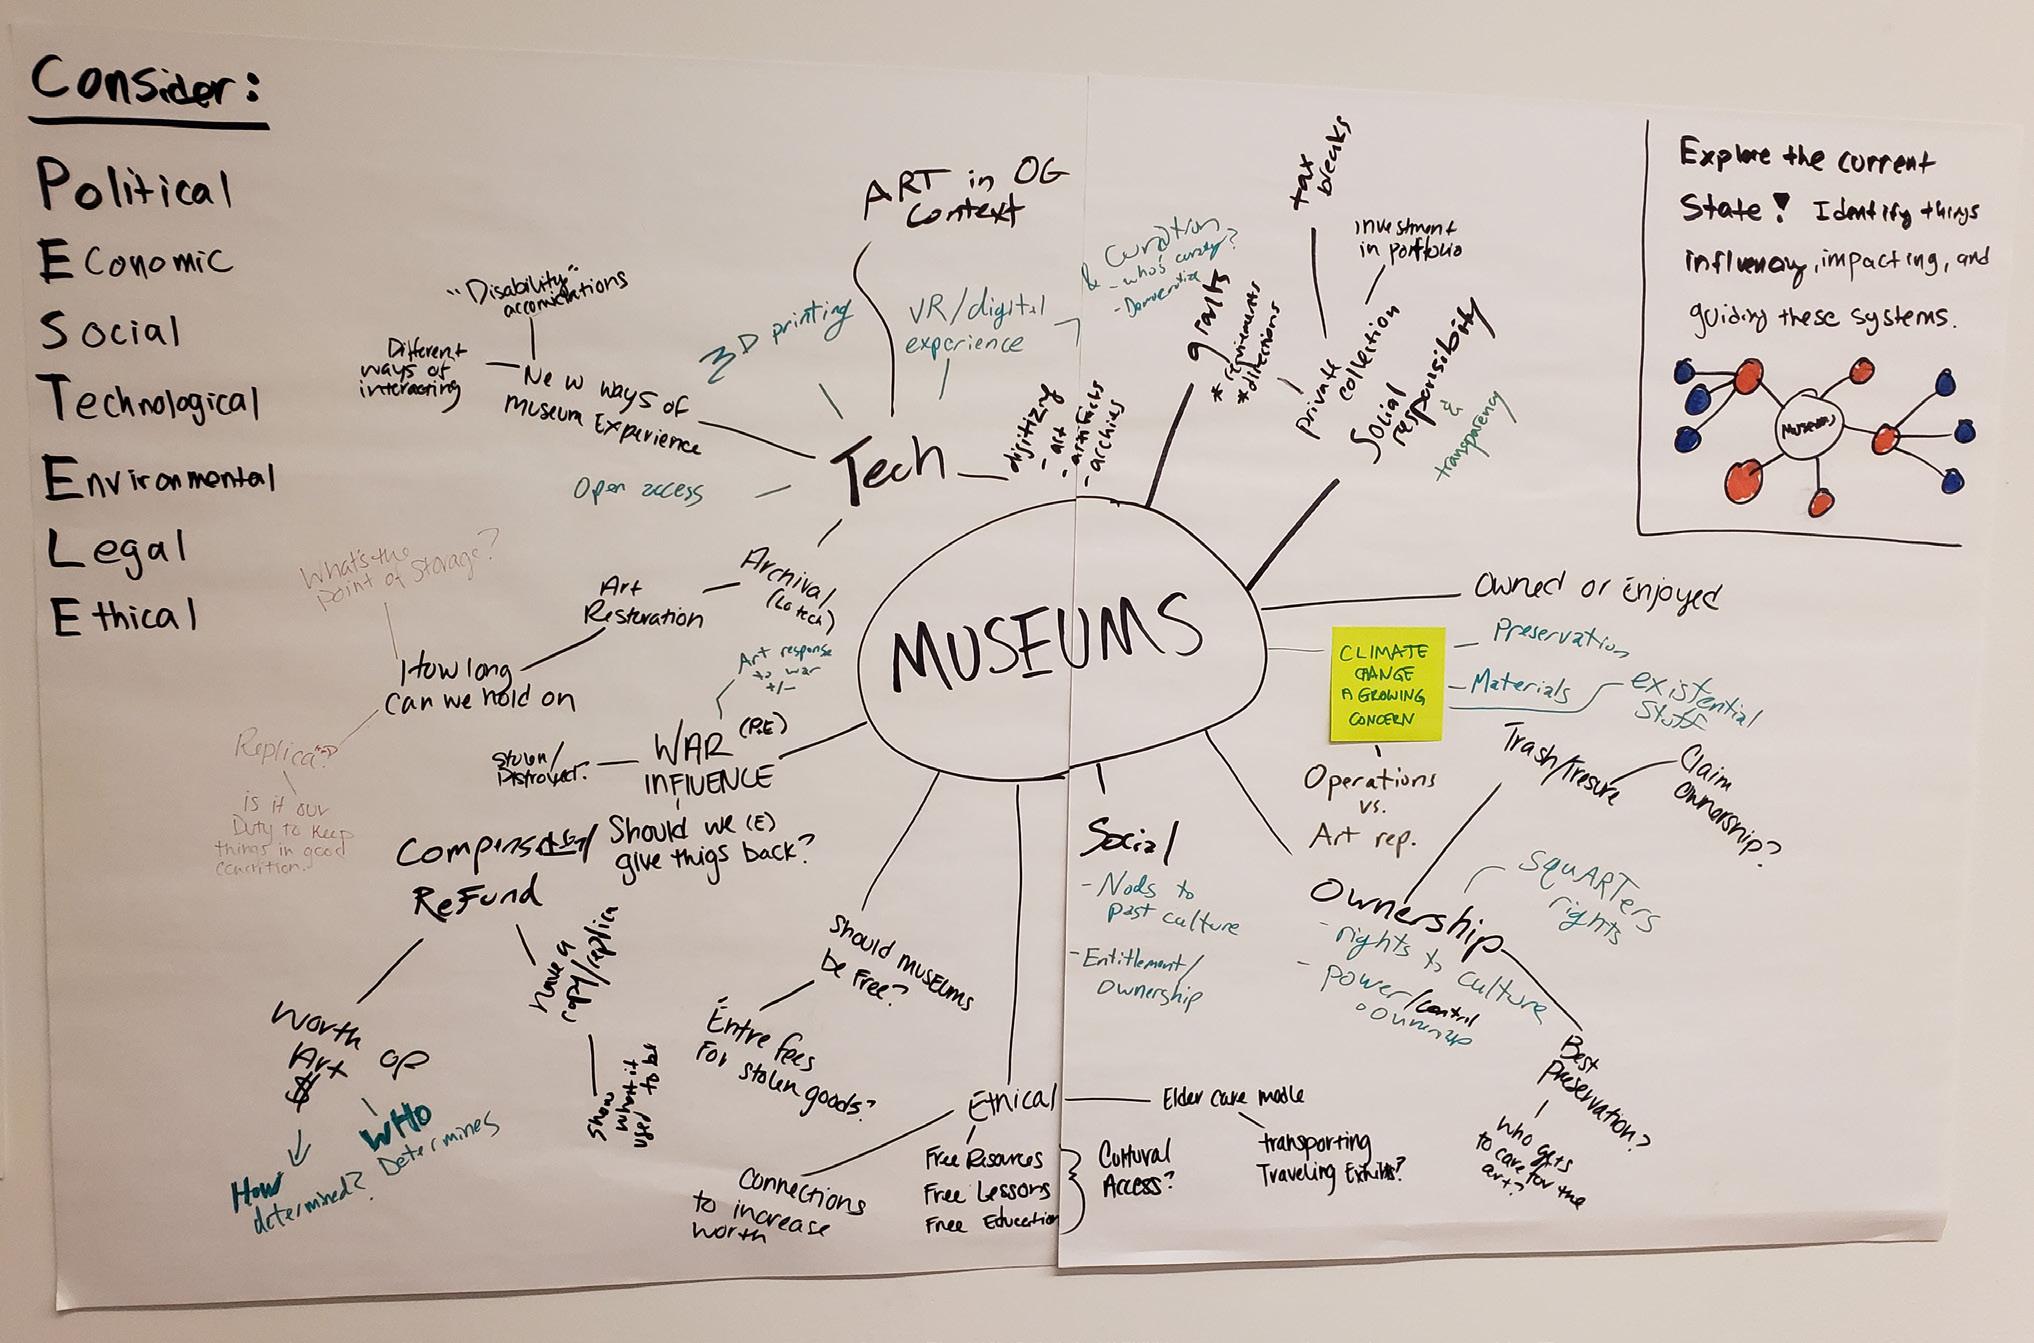 Consider:
Political
Economic
Social
Technological
Environmental
Legal
Ethical
Explore the current
State! Identify things
influency, impacting, and
guiding these systems.
MUSEUMS
MUSEUMS
Tech
ART in OG
context
3D printing
VR/digital
experience
& Curation
- who's
- Democratize
"Disability"
accomidations
Different
ways of
interacting
New ways of
Museum Experience
Open access
digitizing
- art
- artifacts
- archies
Archival
(Lo tech)
Art
Restoration
How long
can we hold on
What's the
point of storage?
Replica?
is it our
Duty to keep
things in good
condition.
grants
* requirements
* directions
tax
breaks
investment
in portfolio
private
collection
Social
responsibility
&
transparency
Owned or Enjoyed
CLIMATE
CHANGE
A GROWING
CONCERN
Preservation
Materials
existential
stuff
Operations
vs.
Art rep.
Ownership
- rights to culture
- power/control
o Ownership
squARTers
rights
Trash/Tresure
Claim
Ownorship?
Best
Preservation?
who gets
to care for the
art?
Social
- Nods to
past culture
- Entitlement/
Ownership
Ethical
Elder care modle
transporting
Traveling Exhibits?
Free Resources
Free Lessons
Free Education
Cultural
Access?
Connections
to increase
worth
Should museums
be free?
Entre fees
For stolen goods?
WAR (P.E)
INFLUENCE
Art response
to war
+/-
Stolen/
Distroyed.
Should we (E)
give thigs back?
ReFund
have a
copy/replica
Show
what it
used to be
Worth
OF
Art
$
How
determined?
WHO
Determines